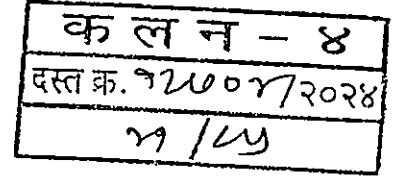 क ल न - ४
दस्त क्र. १२७०४/२०२४